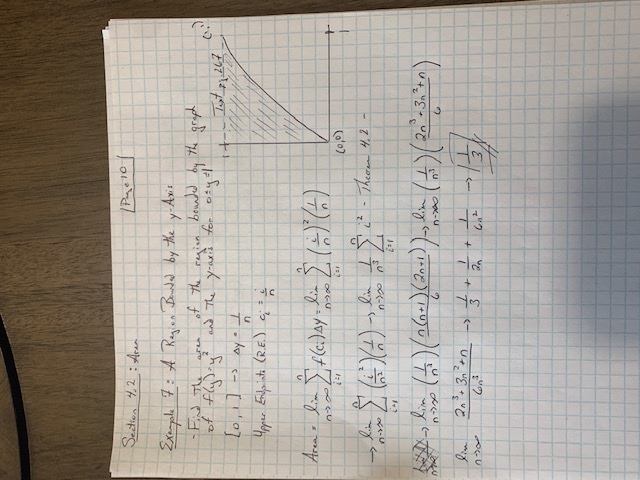 Section 4.2 : Area
Page 10
Example 7 : A Region Bounded by the y-Axis
- Find the area of the region bounded by the graph
of f(y)=y² and the y-axis for 0≤y≤1
[0,1] → Δy = 1/n
Upper Endpoints (R.E.) cᵢ = i/n
1
Text pg 267
(1,1)
(0,0)
1
Area = lim n→∞ Σ i=1 n f(cᵢ)Δy = lim n→∞ Σ i=1 n (i/n)² (1/n)
→ lim n→∞ Σ i=1 n (i²/n²)(1/n) → lim n→∞ 1/n³ Σ i=1 n i² - Theorem 4.2 -
→ lim n→∞ (1/n³)(n(n+1)(2n+1)/6) → lim n→∞ (1/n³)(2n³+3n²+n/6)
lim n→∞ 2n³+3n²+n/6n³ → 1/3 + 1/2n + 1/6n² → 1/3